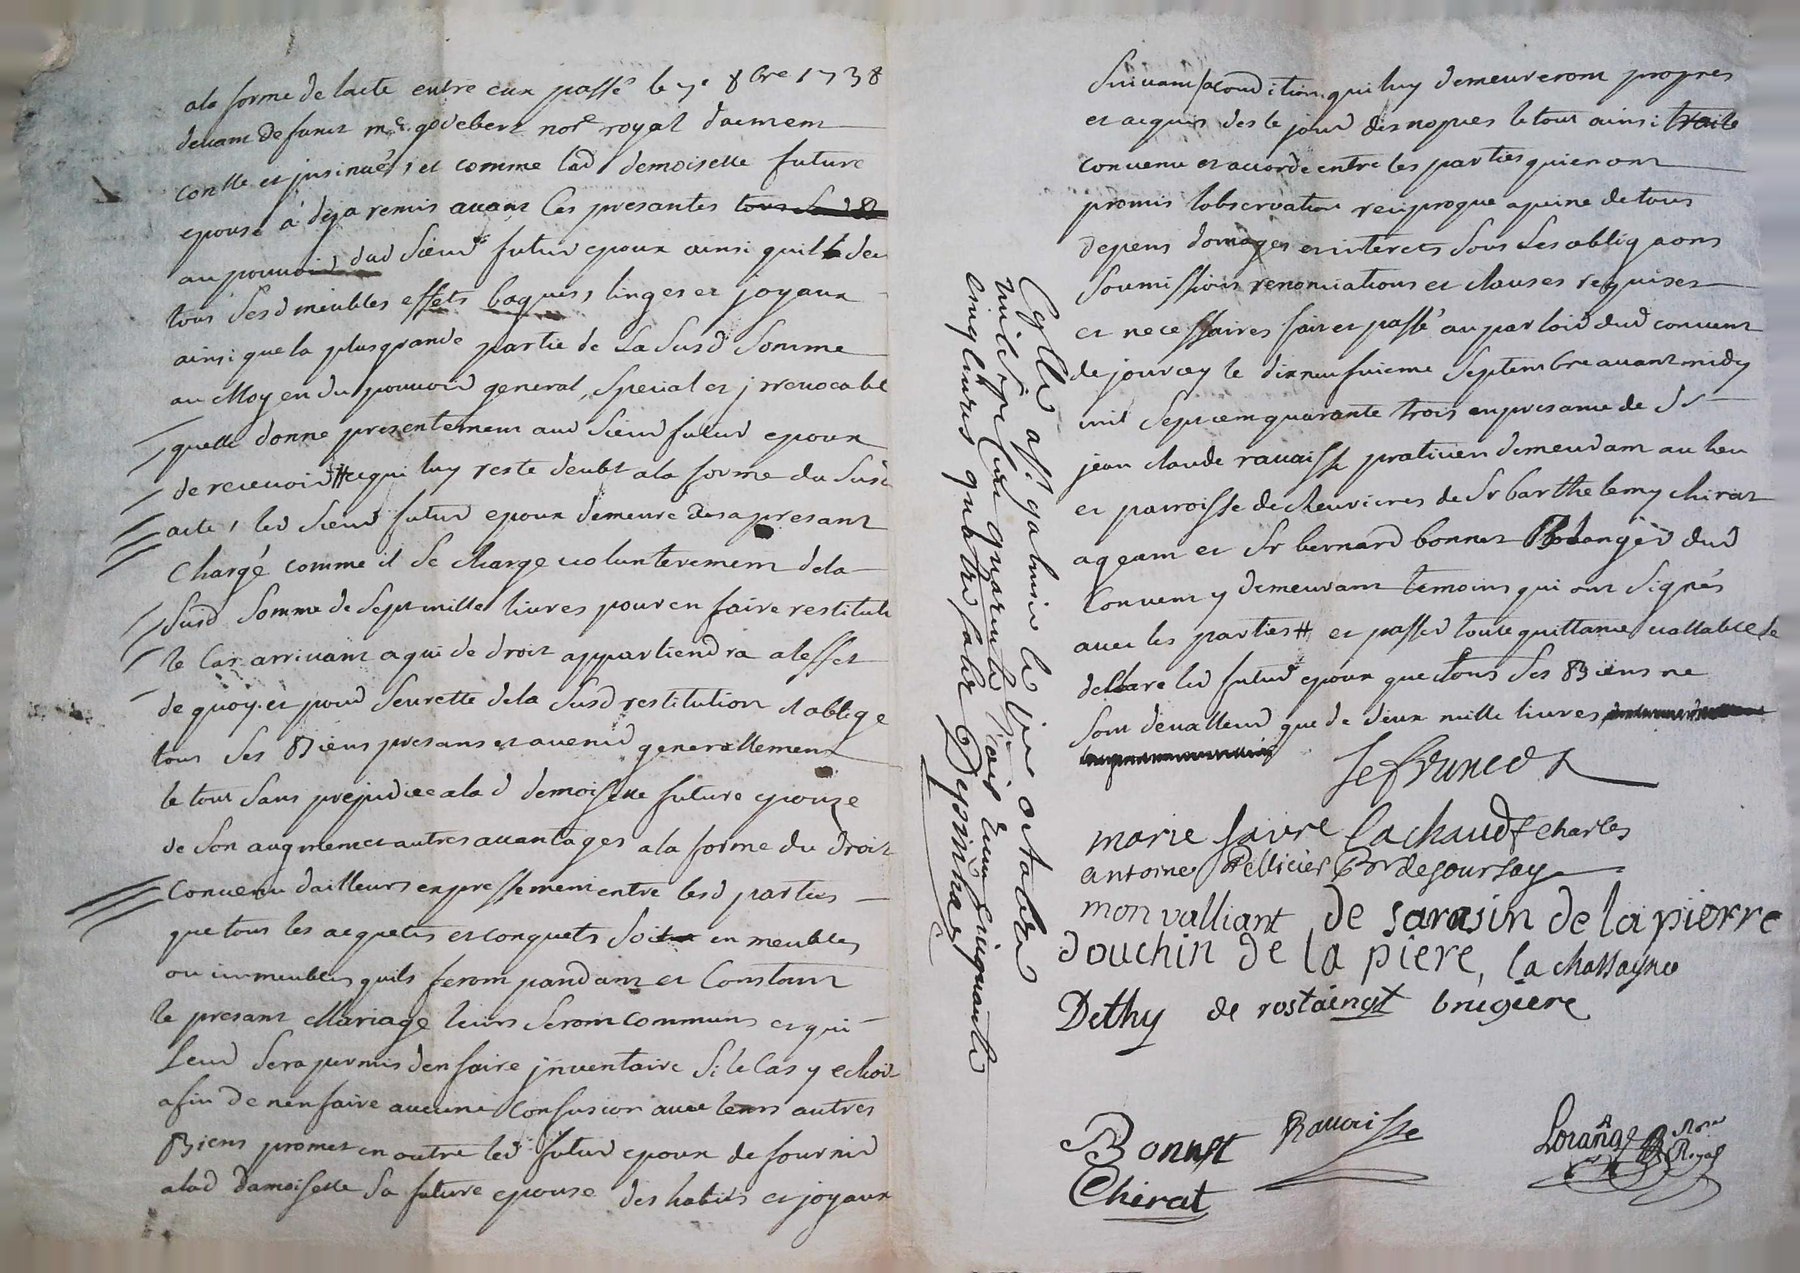 ala forme de lacte entre eux passé le 7e 8bre 1738
devant defunct me godebert nore royal duement
conllé et jnsinué, et comme lad demoiselle future
epouse à deja remis avant ces presantes
au pouvoir dud sieur futur epoux ainsi quil
tous sesd meubles effets bagues, linges et joyaux
ainsi que la plus grande partie de la susd somme
au Moyen du pouvoir general, special et jrrevocable
quelle donne presentement aud sieur futur epoux
de recevoir # ce qui luy reste deubt ala forme du susd
acte, led sieur futur epoux demeure des a presant
Chargé comme il se charge volunterement dela
susd somme de sept mille livres pour en faire restituti
le cas arrivant a qui de droit appartiendra a leffet
de quoy et pour seurette dela susd restitution il oblige
tous ses Biens presans et avenir generallement
le tout sans prejudice alad demoiselle future epouze
de son augment et autres avantages ala forme du droit
Convenu dailleurs expressement entre lesd parties
que tous les acquets et conquets soit en meubles
ou immeubles quils feront pandant et Constant
le presant Mariage leurs seront communs et qui
leur sera permis den faire jnventaire si le cas y echoit
afin de nen faire aucune confusion avec leurs autres
Biens promet en outre led futur epoux de fournir
alad damoiselle sa future epouse des habits et joyaux
suivant sa condition qui luy demeureront propres
et acquis des le jour des nopces le tout ainsi traité
convenu et accordé entre les parties qui en ont
promis lobservation reciproque a peine de tous
depens domages et interets sous ses obligaons
soumissions renonciations et clauses requises
et necessaires fait et passé au parloir dud couvent
de jourcey le dixneufvieme septembre avant midy
mil sept cent quarante trois en presance de sr
jean claude ravaisse praticien demeurant au lieu
et parroisse de chevrieres de sr barthelemy chirat
ageant et sr bernard bonnet Bolanger dud
Couvent y demeurant temoins qui ont signés
avec les parties # et passer toute quittance vallable
declare led futur epoux que tous ses Biens ne
sont de valleur que de deux mille livres
lefrancois
marie faure lachaud f charles
antoine Pellicier Br de goursay
mon valliant de sarasin de la pierre
douchin de la piere, la chassaigne
Dethy de rostaingt brugiere
Bonnet Ravaisse Lorange Nore Royal
Chirat
Cgllé a st galmier le octobre
mil sept cent quarante trois reçu cinquante
cinq livres quatre sols Desvignes